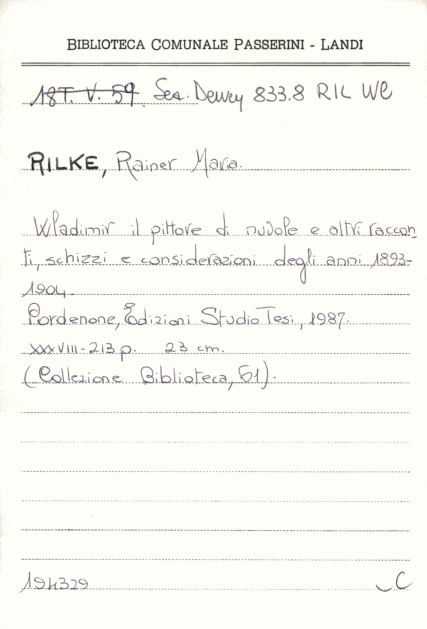 BIBLIOTECA COMUNALE PASSERINI - LANDI
18T. V. 59 Sez. Dewey 833.8 RIL
RILKE, Rainer Maria.
Wladimir il pittore di nuvole e altri raccon
ti, schizzi e considerazioni degli anni 1893-
1904.
Pordenone, Edizioni Studio Tesi, 1987.
XXXVIII-213 p. 23 cm.
(Collezione Biblioteca, 61).
194329